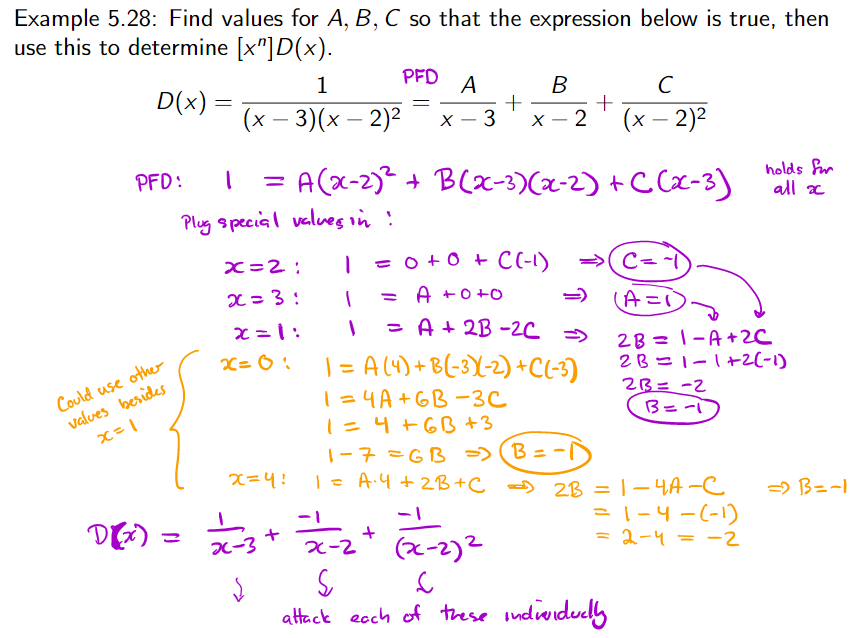 Example 5.28: Find values for A, B, C so that the expression below is true, then
use this to determine [xⁿ]D(x).
PFD
D(x) = 1/((x − 3)(x − 2)²) = A/(x − 3) + B/(x − 2) + C/(x − 2)²
PFD: 1 = A(x-2)² + B(x-3)(x-2) + C(x-3) holds for
all x
Plug special values in :
x=2 : 1 = 0 + 0 + C(-1) ⇒ C = -1
x=3 : 1 = A +0+0 ⇒ A=1
x=1 : 1 = A + 2B -2C ⇒ 2B = 1-A+2C
2B = 1-1+2(-1)
2B = -2
B = -1
Could use other
values besides
x=1
x=0 : 1 = A(4)+B(-3)(-2)+C(-3)
1 = 4A+6B-3C
1 = 4 +6B +3
1-7 = 6B ⇒ B = -1
x=4: 1 = A·4 + 2B+C ⇒ 2B = 1-4A-C ⇒ B=-1
= 1-4-(-1)
= 2-4 = -2
D(x) = 1/(x-3) + -1/(x-2) + -1/(x-2)²
attack each of these individually